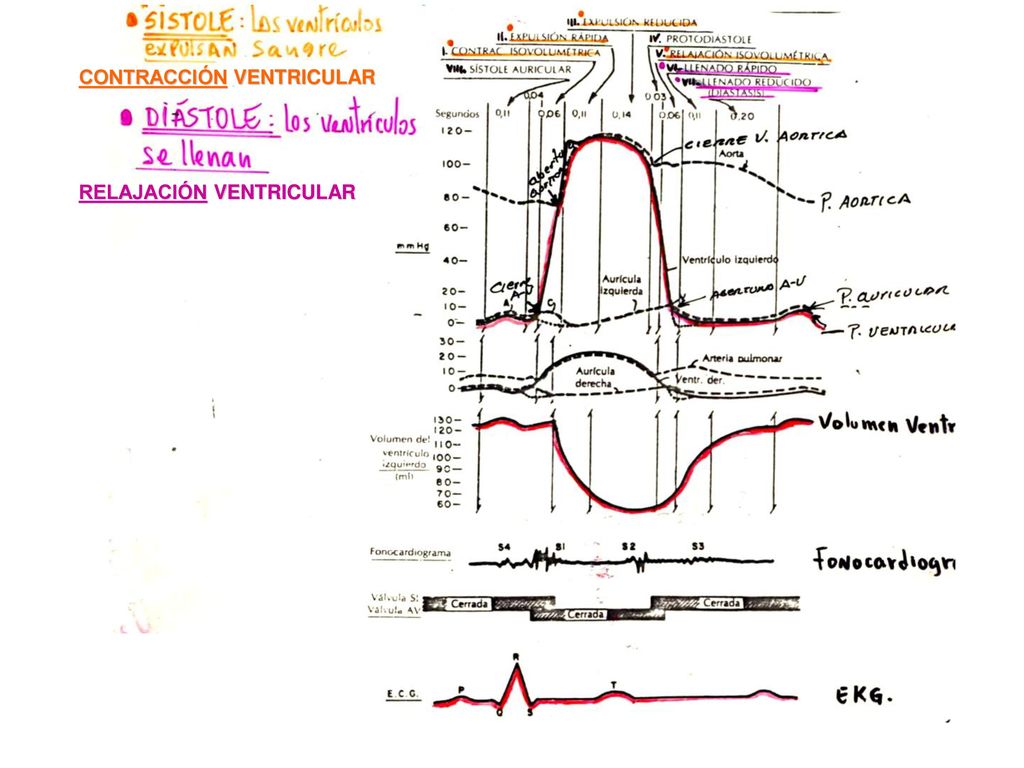 • SÍSTOLE: Los ventrículos
EXPULSAN Sangre
CONTRACCIÓN VENTRICULAR
• DIÁSTOLE: Los ventrículos
se llenan
RELAJACIÓN VENTRICULAR
III. EXPULSIÓN REDUCIDA
II. EXPULSIÓN RÁPIDA
IV. PROTODIASTOLE
I. CONTRAC. ISOVOLUMÉTRICA
V. RELAJACIÓN ISOVOLUMÉTRICA
VIII. SÍSTOLE AURICULAR
VI. LLENADO RÁPIDO
VII. LLENADO REDUCIDO
(DIASTASIS)
0,04 0,03
Segundos 0,11 0,06 0,11 0,14 0,06 0,11 0,20
120
CIERRE V. AORTICA
Aorta
100
80
P. AORTICA
60
mmHg
Ventrículo izquierdo
40
Aurícula
izquierda
ABERTURA A-V
20
P. AURICULAR
10
0
P. VENTRICULA
30
20
Arteria pulmonar
10
Aurícula
derecha
Ventr. der.
0
130
Volumen Ventr
120
Volumen del
ventrículo
izquierdo
(ml)
110
100
90
80
70
60
S4 S1 S2 S3
Fonocardiograma
Fonocardiogr
Válvula SL
Cerrada Cerrada
Válvula AV
Cerrada
R
P T
E.C.G.
EKG.
Q S